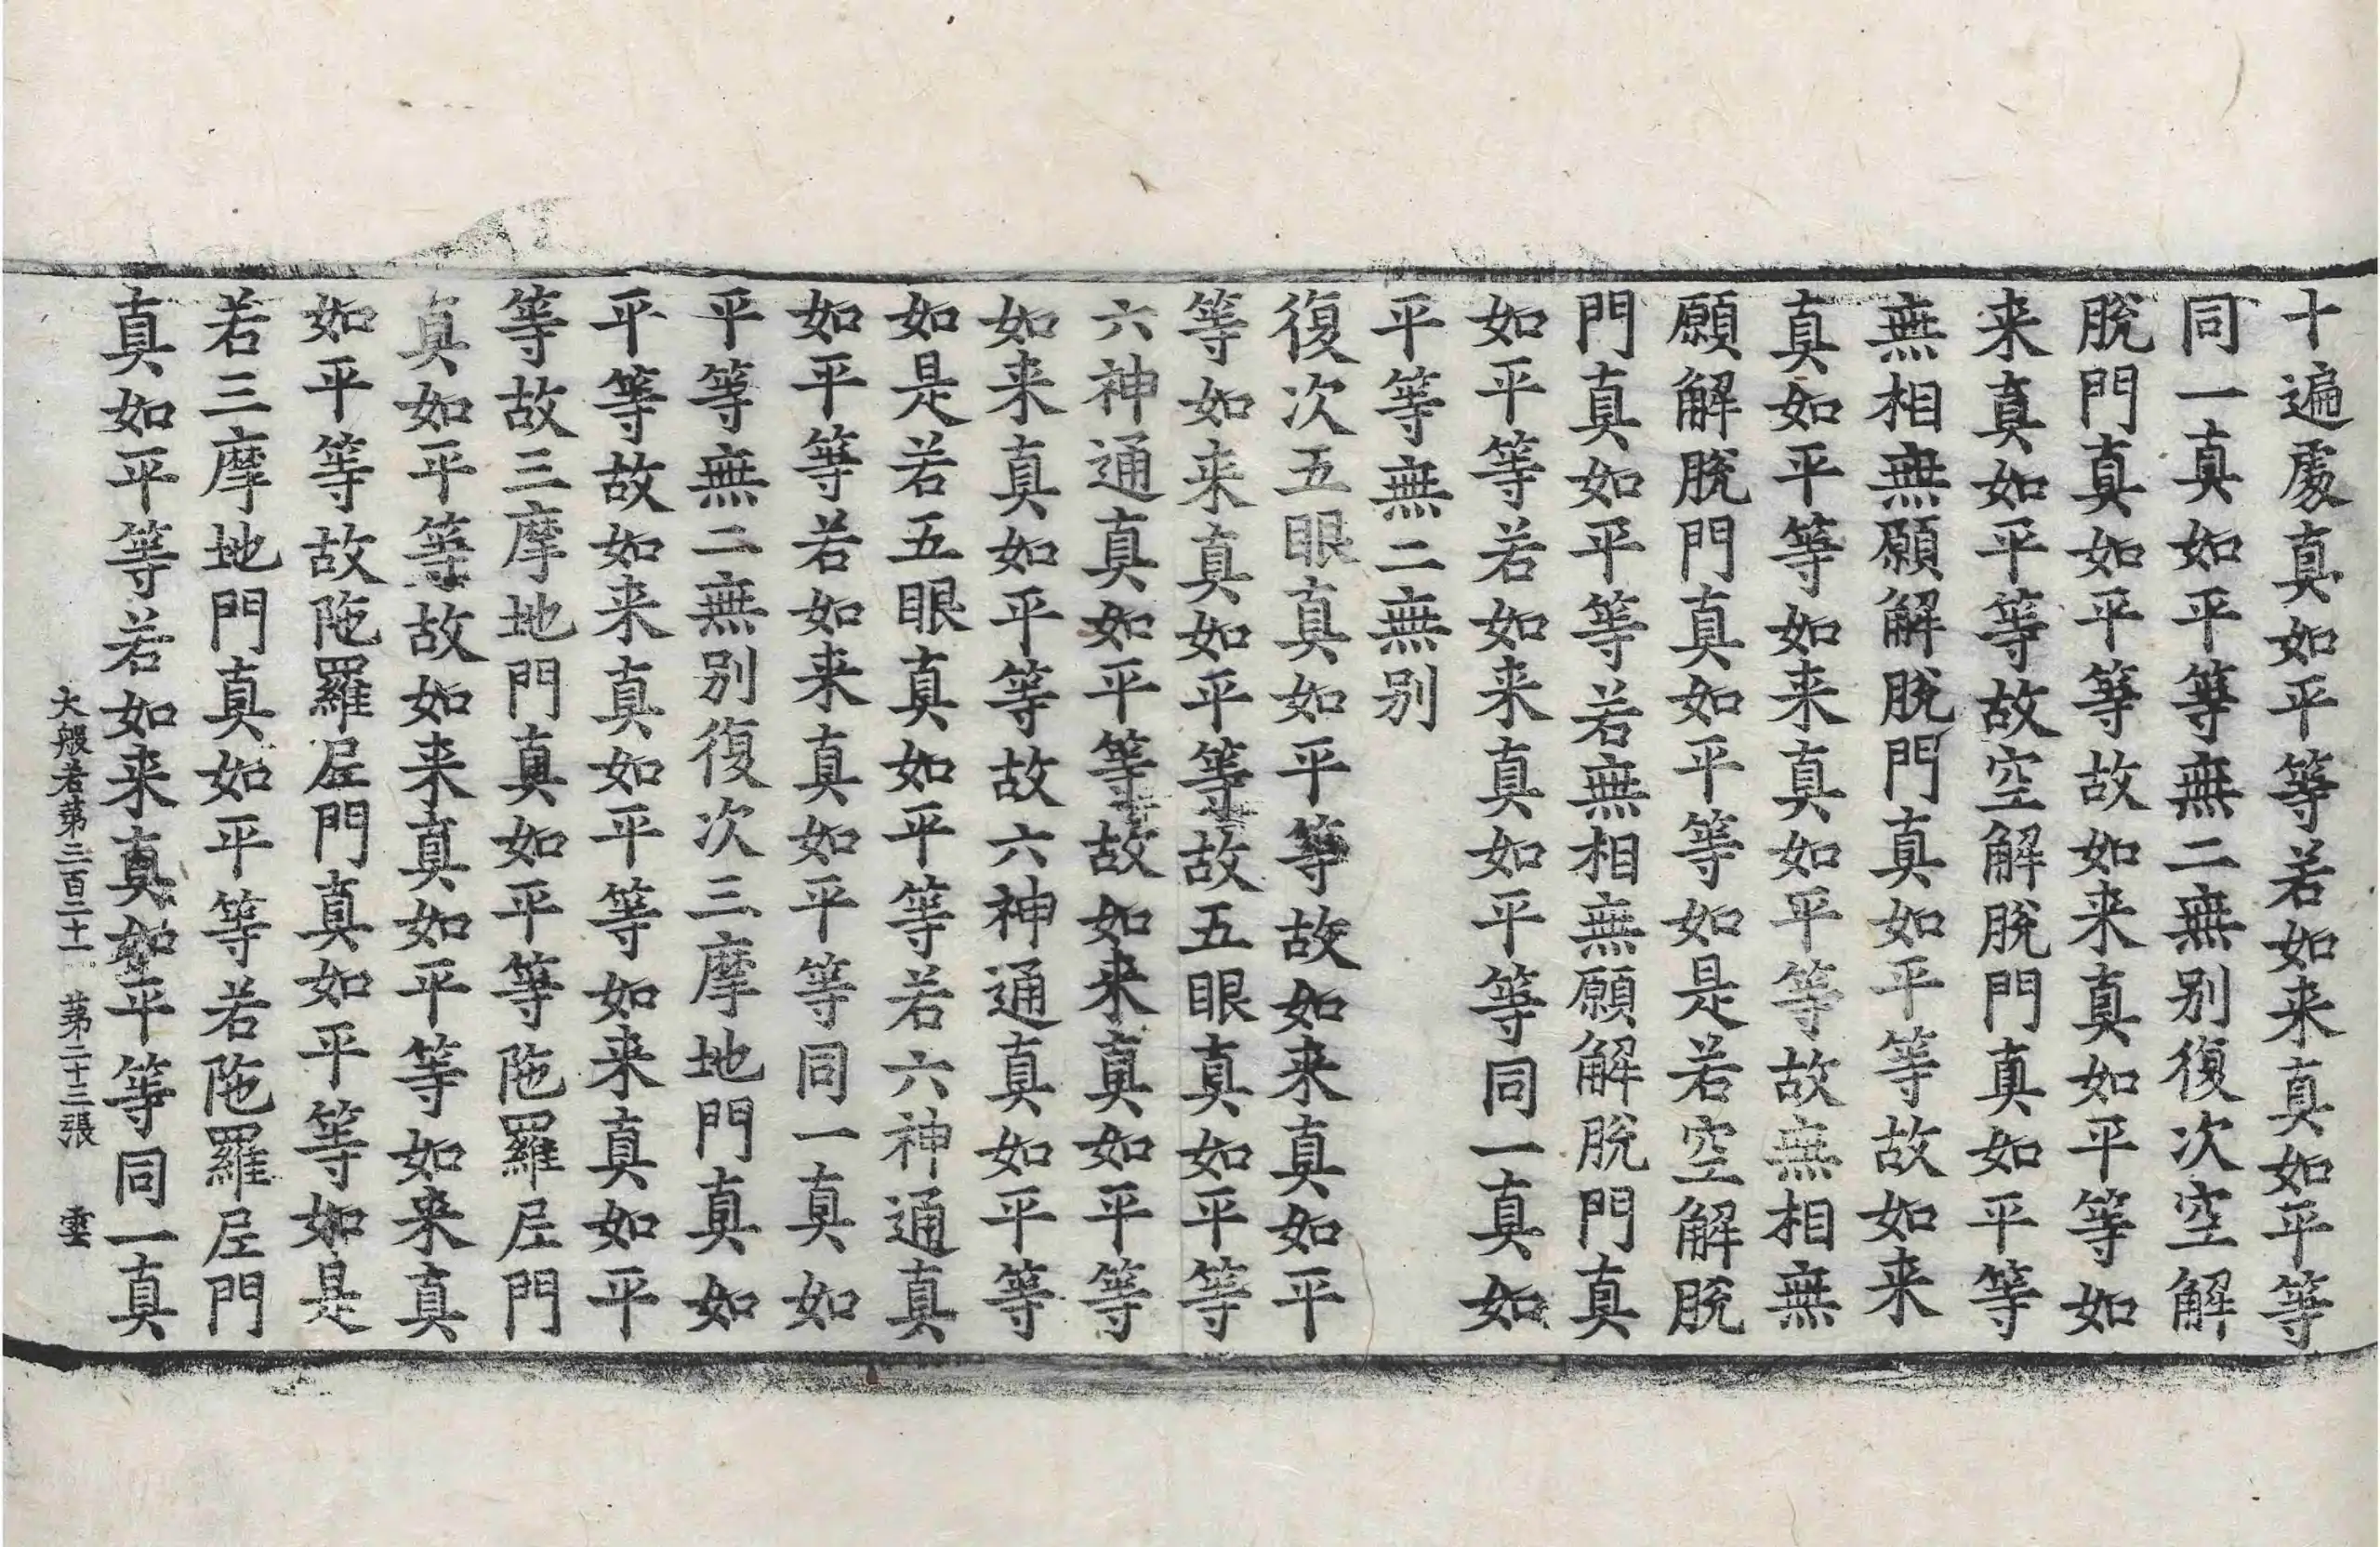 十遍處真如平等若如来真如平等
同一真如平等無二無别復次空解
脫門真如平等故如来真如平等如
来真如平等故空解脫門真如平等
無相無願解脫門真如平等故如来
真如平等如来真如平等故無相無
願解脫門真如平等如是若空解脫
門真如平等若無相無願解脫門真
如平等若如来真如平等同一真如
平等無二無别
復次五眼真如平等故如来真如平
等如来真如平等故五眼真如平等
六神通真如平等故如来真如平等
如来真如平等故六神通真如平等
如是若五眼真如平等若六神通真
如平等若如来真如平等同一真如
平等無二無别復次三摩地門真如
平等故如来真如平等如来真如平
等故三摩地門真如平等陁羅尼門
真如平等故如来真如平等如来真
如平等故陁羅尼門真如平等如是
若三摩地門真如平等若陁羅尼門
真如平等若如来真如平等同一真
大般若第三百二十一 第二十三張